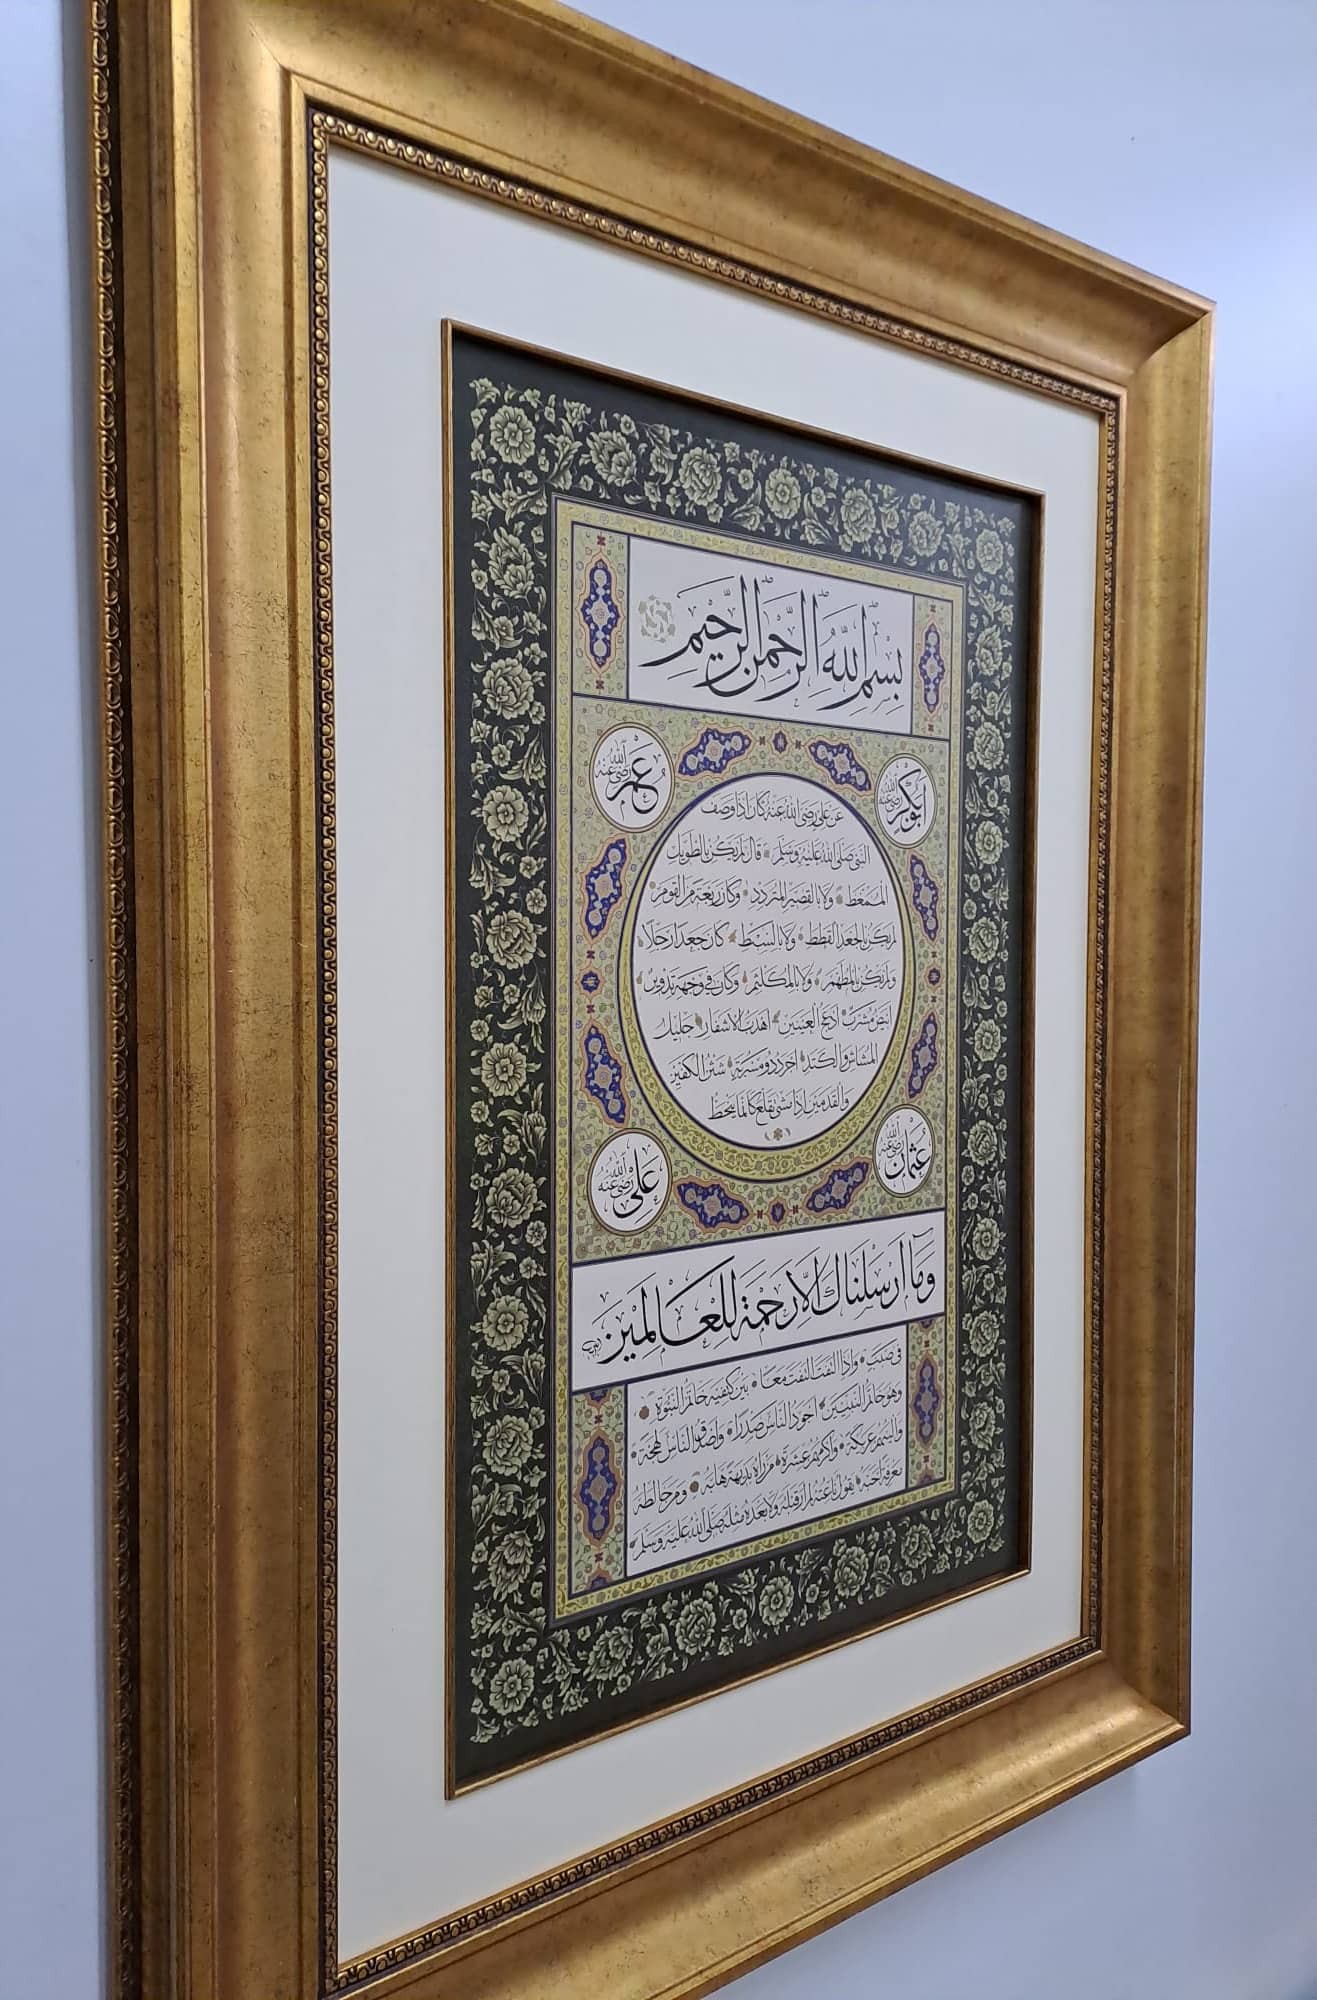 بِسْمِ اللَّهِ الرَّحْمَنِ الرَّحِيمِ
أبو بكر رضي الله عنه
عمر رضي الله عنه
عن علي رضي الله عنه كان اذا وصف
النبي صلى الله عليه وسلم قال لم يكن بالطويل
الممغط ولا بالقصير المتردد وكان ربعة من القوم
لم يكن بالجعد القطط ولا بالسبط كان جعدا رجلا
ولم يكن بالمطهم ولا بالمكلثم وكان في وجهه تدوير
ابيض مشرب ادعج العينين اهدب الاشفار جليل
المشاش والكتد اجرد ذو مسربة شثن الكفين
والقدمين اذا مشى تقلع كانما ينحط
عثمان رضي الله عنه
علي رضي الله عنه
وما ارسلناك الا رحمة للعالمين
في صبب واذا التفت التفت معا بين كتفيه خاتم النبوة
وهو خاتم النبيين اجود الناس صدرا واصدق الناس لهجة
والينهم عريكة واكرمهم عشرة من راه بديهة هابه ومن خالطه
معرفة احبه يقول ناعته لم ار قبله ولا بعده مثله صلى الله عليه وسلم